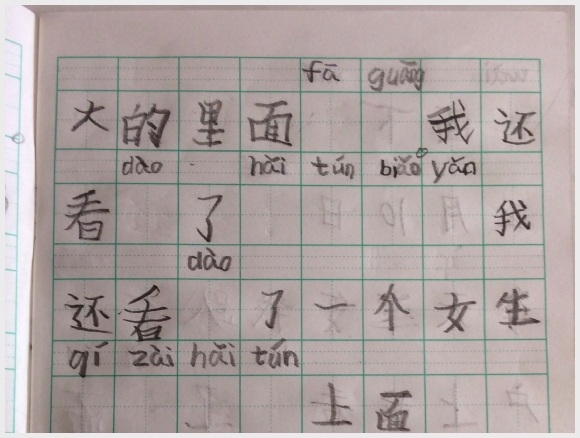 fā guāng
大的里面 我还
dào hǎi tún biǎo yǎn
看 了 我
dào
还看 了一个女生
qí zài hǎi tún
上面